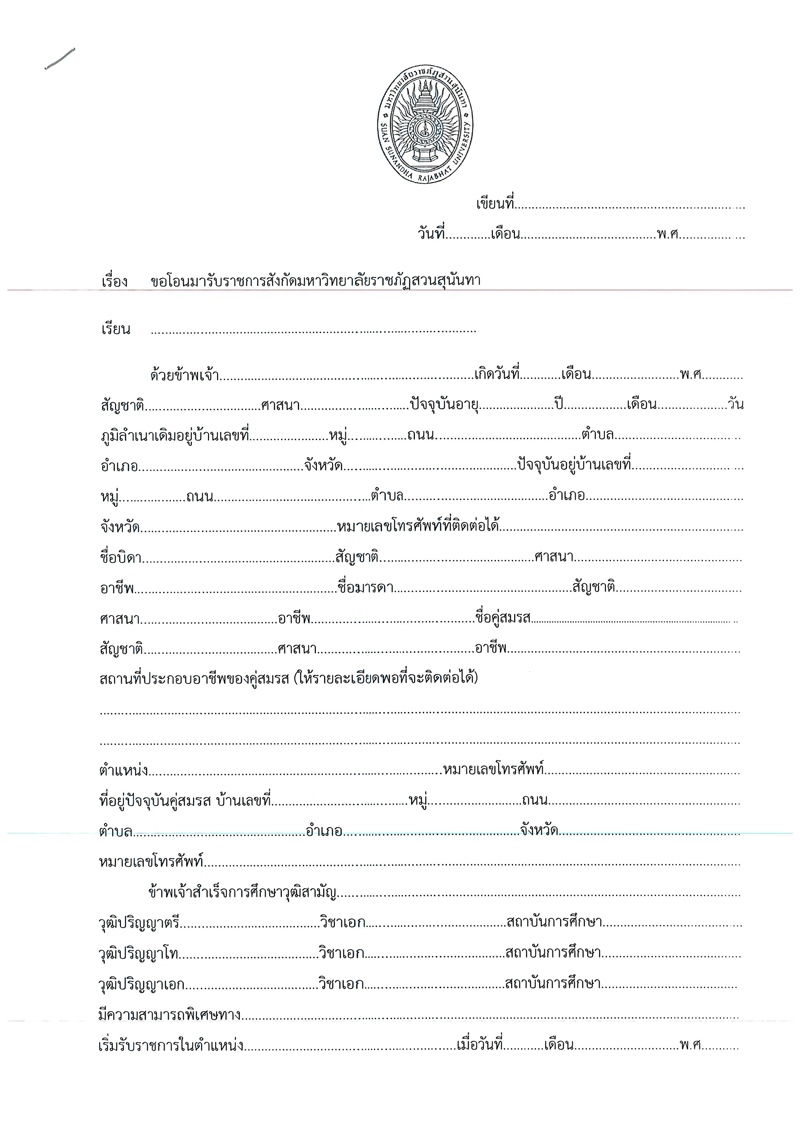 มหาวิทยาลัยราชภัฏสวนสุนันทา
SUAN SUNANDHA RAJABHAT UNIVERSITY
เขียนที่..............................................................
วันที่............เดือน....................................พ.ศ..................
เรื่อง ขอโอนมารับราชการสังกัดมหาวิทยาลัยราชภัฏสวนสุนันทา
เรียน ......................................................................................
ด้วยข้าพเจ้า..................................................................เกิดวันที่...........เดือน.......................พ.ศ...........
สัญชาติ...............................ศาสนา............................ปัจจุบันอายุ....................ปี.................เดือน...................วัน
ภูมิลำเนาเดิมอยู่บ้านเลขที่.....................หมู่................ถนน..............................................ตำบล..................................
อำเภอ............................................จังหวัด..............................................ปัจจุบันอยู่บ้านเลขที่.............................
หมู่..................ถนน..........................................ตำบล.......................................อำเภอ..........................................
จังหวัด....................................................หมายเลขโทรศัพท์ที่ติดต่อได้.................................................................
ชื่อบิดา...................................................สัญชาติ..........................................ศาสนา............................................
อาชีพ......................................................ชื่อมารดา...............................................สัญชาติ..................................
ศาสนา....................................อาชีพ............................................ชื่อคู่สมรส......................................................
สัญชาติ...................................ศาสนา..........................................อาชีพ..............................................................
สถานที่ประกอบอาชีพของคู่สมรส (ให้รายละเอียดพอที่จะติดต่อได้)
..............................................................................................................................................................
..............................................................................................................................................................
ตำแหน่ง...............................................................................หมายเลขโทรศัพท์....................................................
ที่อยู่ปัจจุบันคู่สมรส บ้านเลขที่....................................หมู่.........................ถนน...................................................
ตำบล..............................................อำเภอ...............................................จังหวัด................................................
หมายเลขโทรศัพท์..............................................................................................................................................
ข้าพเจ้าสำเร็จการศึกษาวุฒิสามัญ...........................................................................................................
วุฒิปริญญาตรี.....................................วิชาเอก.....................................สถาบันการศึกษา.....................................
วุฒิปริญญาโท.....................................วิชาเอก.....................................สถาบันการศึกษา.....................................
วุฒิปริญญาเอก...................................วิชาเอก.....................................สถาบันการศึกษา.....................................
มีความสามารถพิเศษทาง....................................................................................................................................
เริ่มรับราชการในตำแหน่ง........................................................เมื่อวันที่...........เดือน............................พ.ศ..........